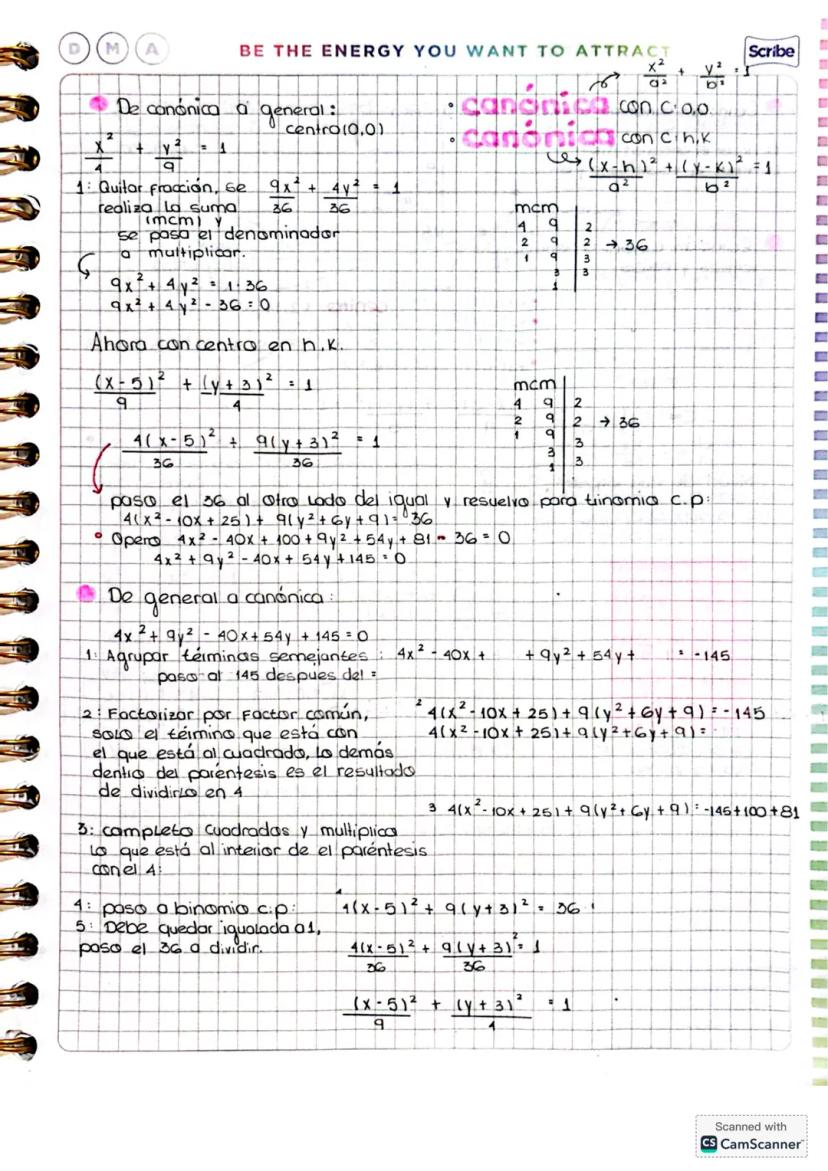 D M A
BE THE ENERGY YOU WANT TO ATTRACT
Scribe
x²/a² + y²/b² = 1
De canónica a general:
centro (0,0)
• canónica con C: 0,0
• canónica con C: h,k
(x-h)²/a² + (y-k)²/b² = 1
x²/4 + y²/9 = 1
1: Quitar fracción, se
realiza la suma
(mcm) y
se pasa el denominador
a multiplicar.
9x²/36 + 4y²/36 = 1
mcm
4 9 | 2
2 9 | 2 → 36
1 9 | 3
3 | 3
1
9x² + 4y² = 1·36
9x² + 4y² - 36 = 0
Ahora con centro en h,k.
(x-5)²/9 + (y+3)²/4 = 1
mcm
4 9 | 2
2 9 | 2 → 36
1 9 | 3
3 | 3
1
4(x-5)²/36 + 9(y+3)²/36 = 1
paso el 36 al otro lado del igual y resuelvo para trinomio c.p:
4(x² - 10x + 25) + 9(y² + 6y + 9) = 36
• Opero 4x² - 40x + 100 + 9y² + 54y + 81 - 36 = 0
4x² + 9y² - 40x + 54y + 145 = 0
De general a canónica:
4x² + 9y² - 40x + 54y + 145 = 0
1: Agrupar términos semejantes: 4x² - 40x + + 9y² + 54y + = -145
paso al 145 despues del =
2: Factorizar por factor común,
solo el término que está con
el que está al cuadrado, lo demás
dentro del paréntesis es el resultado
de dividirlo en 4
2 4(x² - 10x + 25) + 9(y² + 6y + 9) = -145
4(x² - 10x + 25) + 9(y² + 6y + 9) =
3 4(x² - 10x + 25) + 9(y² + 6y + 9) = -145 + 100 + 81
3: completo cuadrados y multiplico
lo que está al interior de el paréntesis
con el 4:
4: paso a binomio c.p:
4 4(x-5)² + 9(y+3)² = 36
5: Debe quedar igualada a 1,
paso el 36 a dividir.
4(x-5)²/36 + 9(y+3)²/36 = 1
(x-5)²/9 + (y+3)²/4 = 1
Scanned with
CS CamScanner